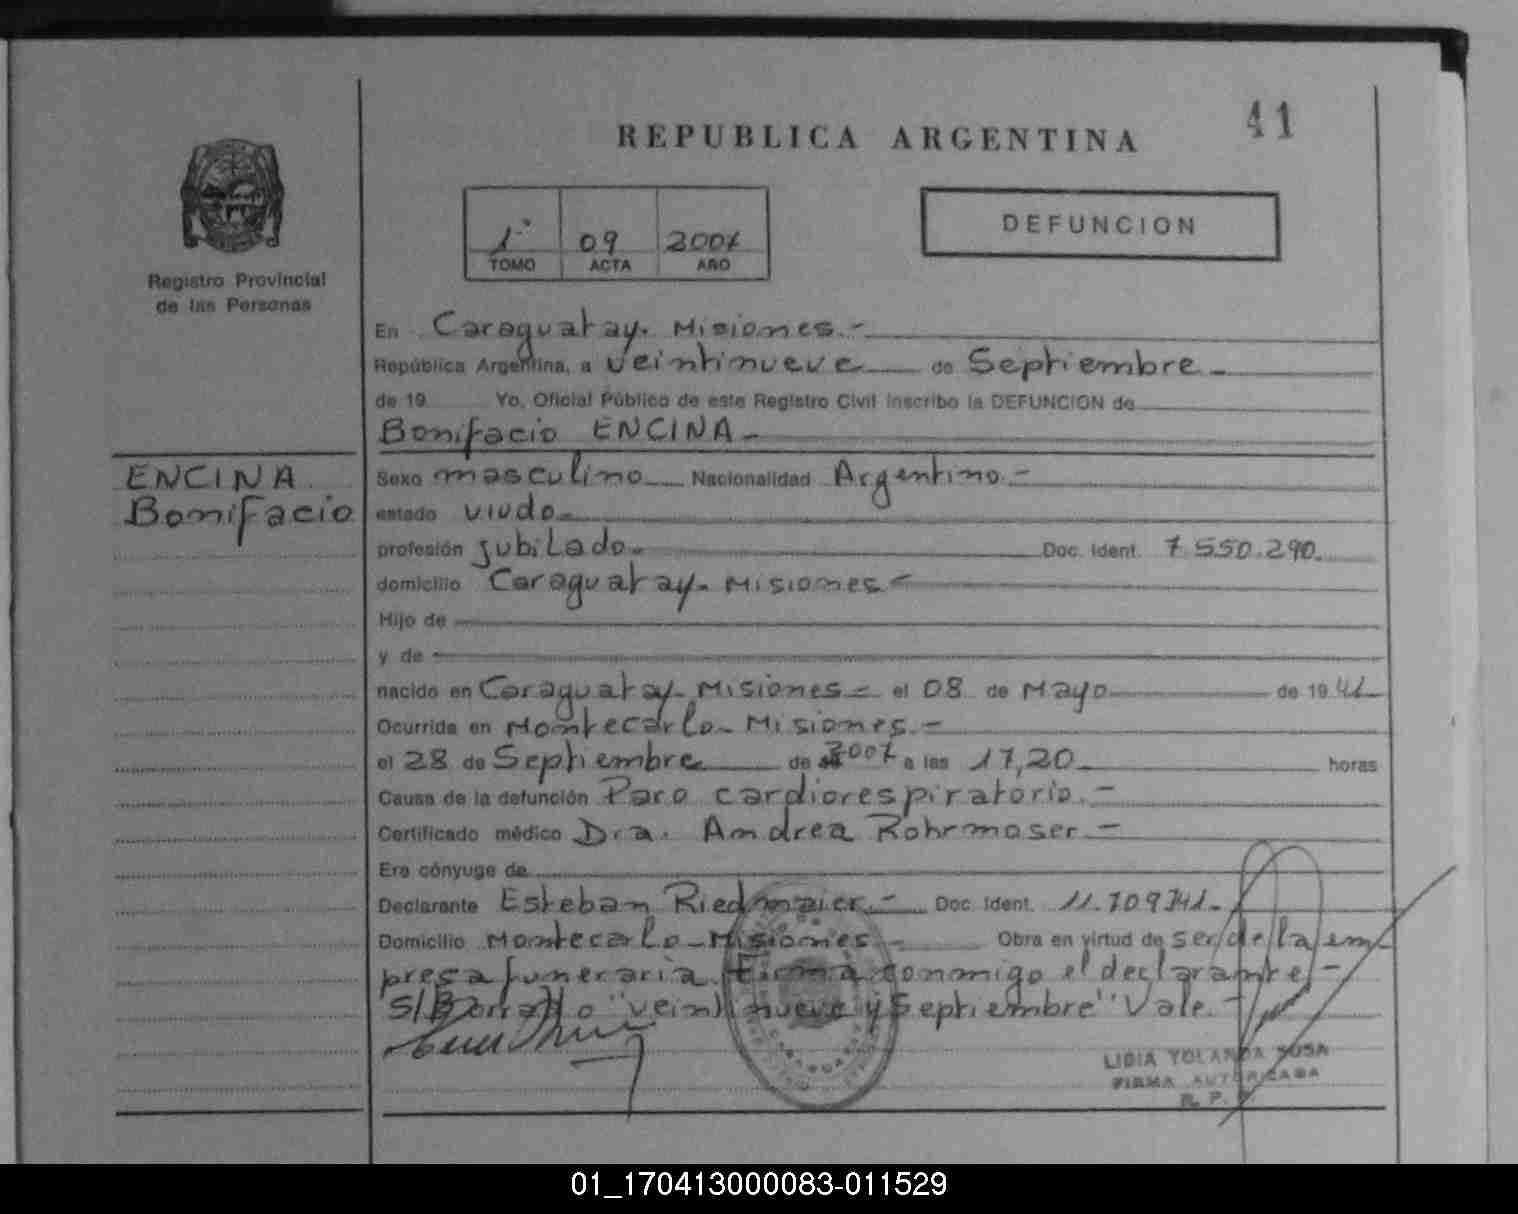 41
REPUBLICA ARGENTINA
Registro Provincial
de las Personas
1° 09 2007
TOMO ACTA AÑO
DEFUNCION
En Caraguatay. Misiones.-
República Argentina, a veintinueve de Septiembre-
de 19 Yo, Oficial Público de este Registro Civil inscribo la DEFUNCION de
Bonifacio ENCINA-
ENCINA
Bonifacio
Sexo masculino Nacionalidad Argentino.-
estado viudo-
profesión jubilado- Doc. Ident. 7.550.290.
domicilio Caraguatay- Misiones-
Hijo de
y de
nacido en Caraguatay- Misiones- el 08 de Mayo de 19
Ocurrida en Montecarlo- Misiones.-
el 28 de Septiembre de 2007 a las 17,20 horas
Causa de la defunción Paro cardiorespiratorio.-
Certificado médico Dra. Andrea Rohrmoser.-
Era cónyuge de
Declarante Esteban Riedmaier.- Doc. Ident. 11.709.741-
Domicilio Montecarlo- Misiones- Obra en virtud de ser de la em-
presa funeraria. Firma conmigo el declarante,-
S/Borrado "veintinueve y Septiembre" Vale.-
LIDIA YOLANDA SOSA
FIRMA AUTORIZADA
R. P.
01_170413000083-011529